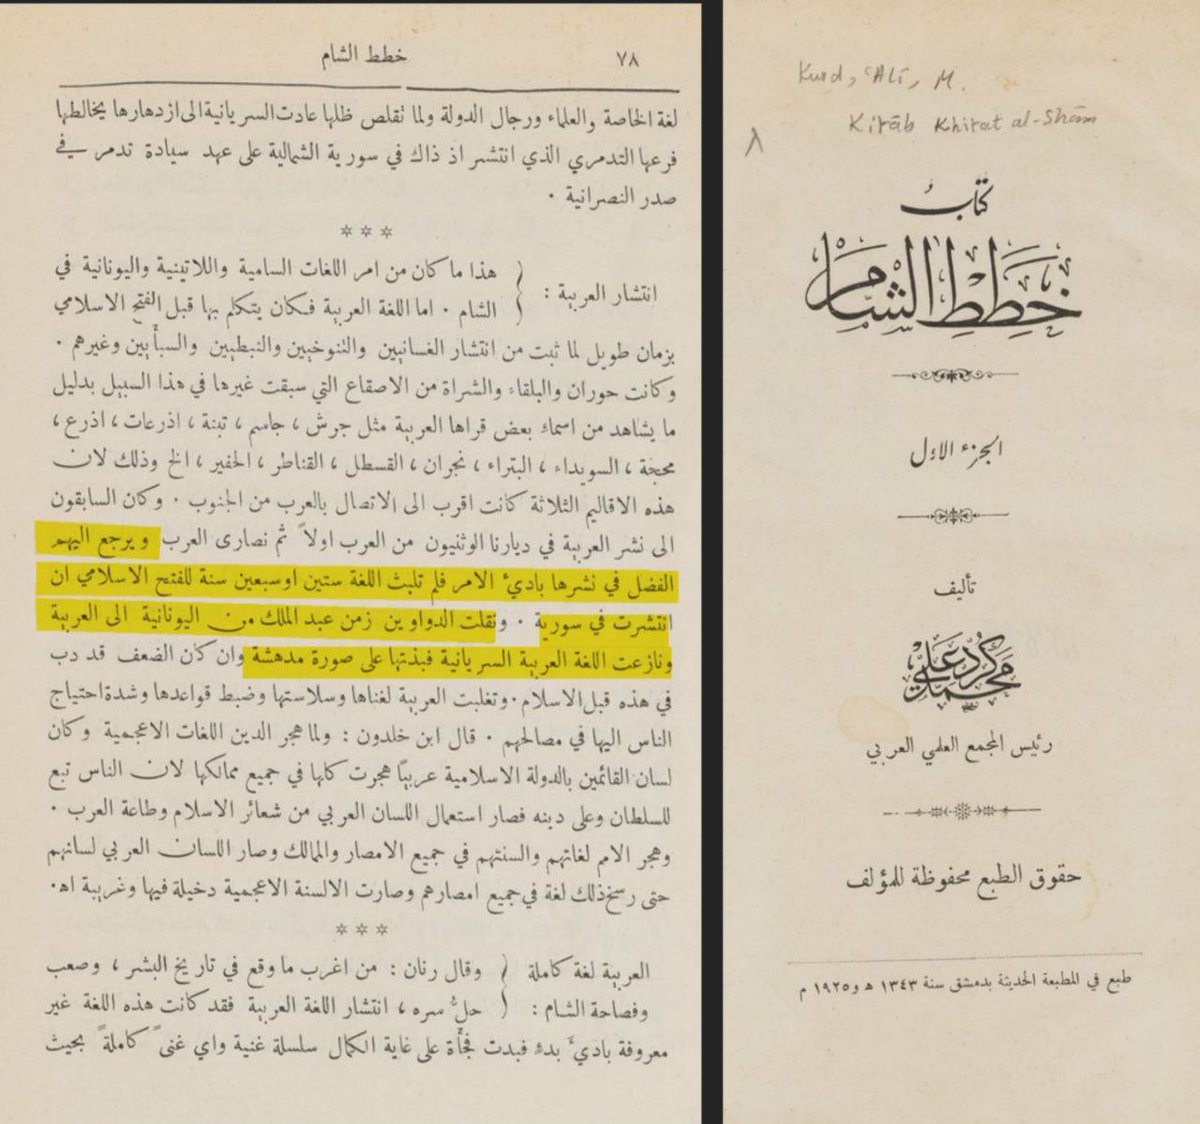 ٧٨ خطط الشام
لغة الخاصة والعلماء ورجال الدولة ولما تقلص ظلها عادت السريانية الى ازدهارها يخالطها
فرعها التدمري الذي انتشر اذ ذاك في سورية الشمالية على عهد سيادة تدمر في
صدر النصرانية ٠
***
انتشار العربية : { هذا ما كان من امر اللغات السامية واللاتينية واليونانية في
الشام ٠ اما اللغة العربية فكان يتكلم بها قبل الفتح الاسلامي
بزمان طويل لما ثبت من انتشار الغسانيين والتنوخيين والنبطيين والسبأيين وغيرهم ٠
وكانت حوران والبلقاء والشراة من الاصقاع التي سبقت غيرها في هذا السبيل بدليل
ما يشاهد من اسماء بعض قراها العربية مثل جرش ، جاسم ، تبنة ، اذرعات ، اذرع ،
محجة ، السويداء ، البتراء ، نجران ، القسطل ، القناطر ، الحفير ، الخ وذلك لان
هذه الاقاليم الثلاثة كانت اقرب الى الاتصال بالعرب من الجنوب ٠ وكان السابقون
الى نشر العربية في ديارنا الوثنيون من العرب اولاً ثم نصارى العرب ويرجع اليهم
الفضل في نشرها بادئ الامر فلم تلبث اللغة ستين او سبعين سنة للفتح الاسلامي ان
انتشرت في سورية ٠ ونقلت الدواوين زمن عبد الملك من اليونانية الى العربية
ونازعت اللغة العربية السريانية فبذتها على صورة مدهشة وان كان الضعف قد دب
في هذه قبل الاسلام ٠ وتغلبت العربية لغناها وسلاستها وضبط قواعدها وشدة احتياج
الناس اليها في مصالحهم ٠ قال ابن خلدون : ولما هجر الدين اللغات الاعجمية وكان
لسان القائمين بالدولة الاسلامية عربيًا هجرت كلها في جميع ممالكها لان الناس تبع
للسلطان وعلى دينه فصار استعمال اللسان العربي من شعائر الاسلام وطاعة العرب ٠
وهجر الامم لغاتهم والسنتهم في جميع الامصار والممالك وصار اللسان العربي لسانهم
حتى رسخ ذلك لغة في جميع امصارهم وصارت الالسنة الاعجمية دخيلة فيها وغريبة اهـ٠
***
العربية لغة كاملة { وقال رنان : من اغرب ما وقع في تاريخ البشر ، وصعب
وفصاحة الشام : حلُّ سره ، انتشار اللغة العربية فقد كانت هذه اللغة غير
معروفة بادئَ بدء فبدت فجأَة على غاية الكمال سلسلة غنية واي غنىً كاملةً بحيث
Kurd, ʿAlī, M.
Kitāb Khitat al-Shām
٨
كتابُ
خطط الشام
الجزء الاول
تأليف
محمد كرد علي
رئيس المجمع العلمي العربي
حقوق الطبع محفوظة للمؤلف
طبع في المطبعة الحديثة بدمشق سنة ١٣٤٣ هـ و١٩٢٥ م